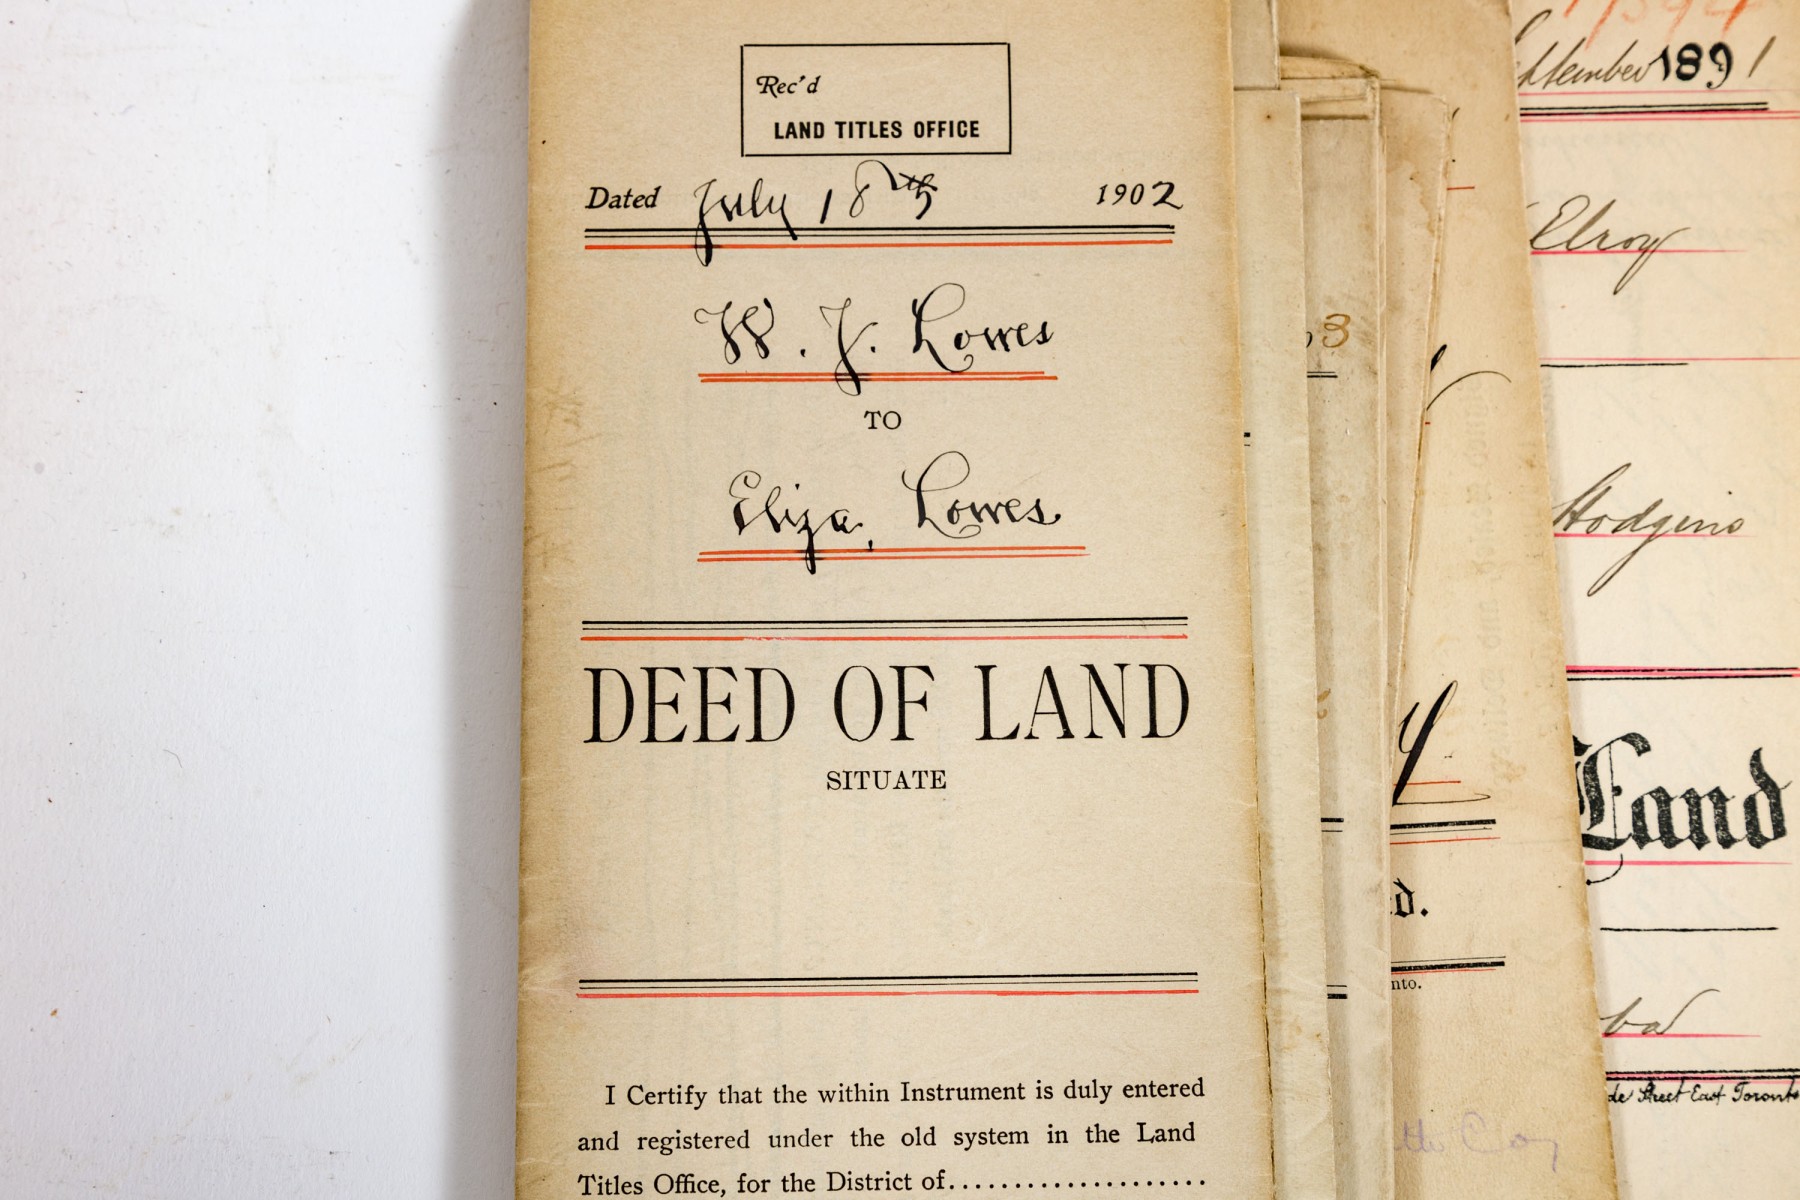 Rec'd
LAND TITLES OFFICE
Dated July 18th 1902
W. J. Lowes
TO
Eliza Lowes
DEED OF LAND
SITUATE
I Certify that the within Instrument is duly entered
and registered under the old system in the Land
Titles Office, for the District of....................
3
d.
nto.
1891
Elroy
Hodgins
Land
ba
de Street East Toronto